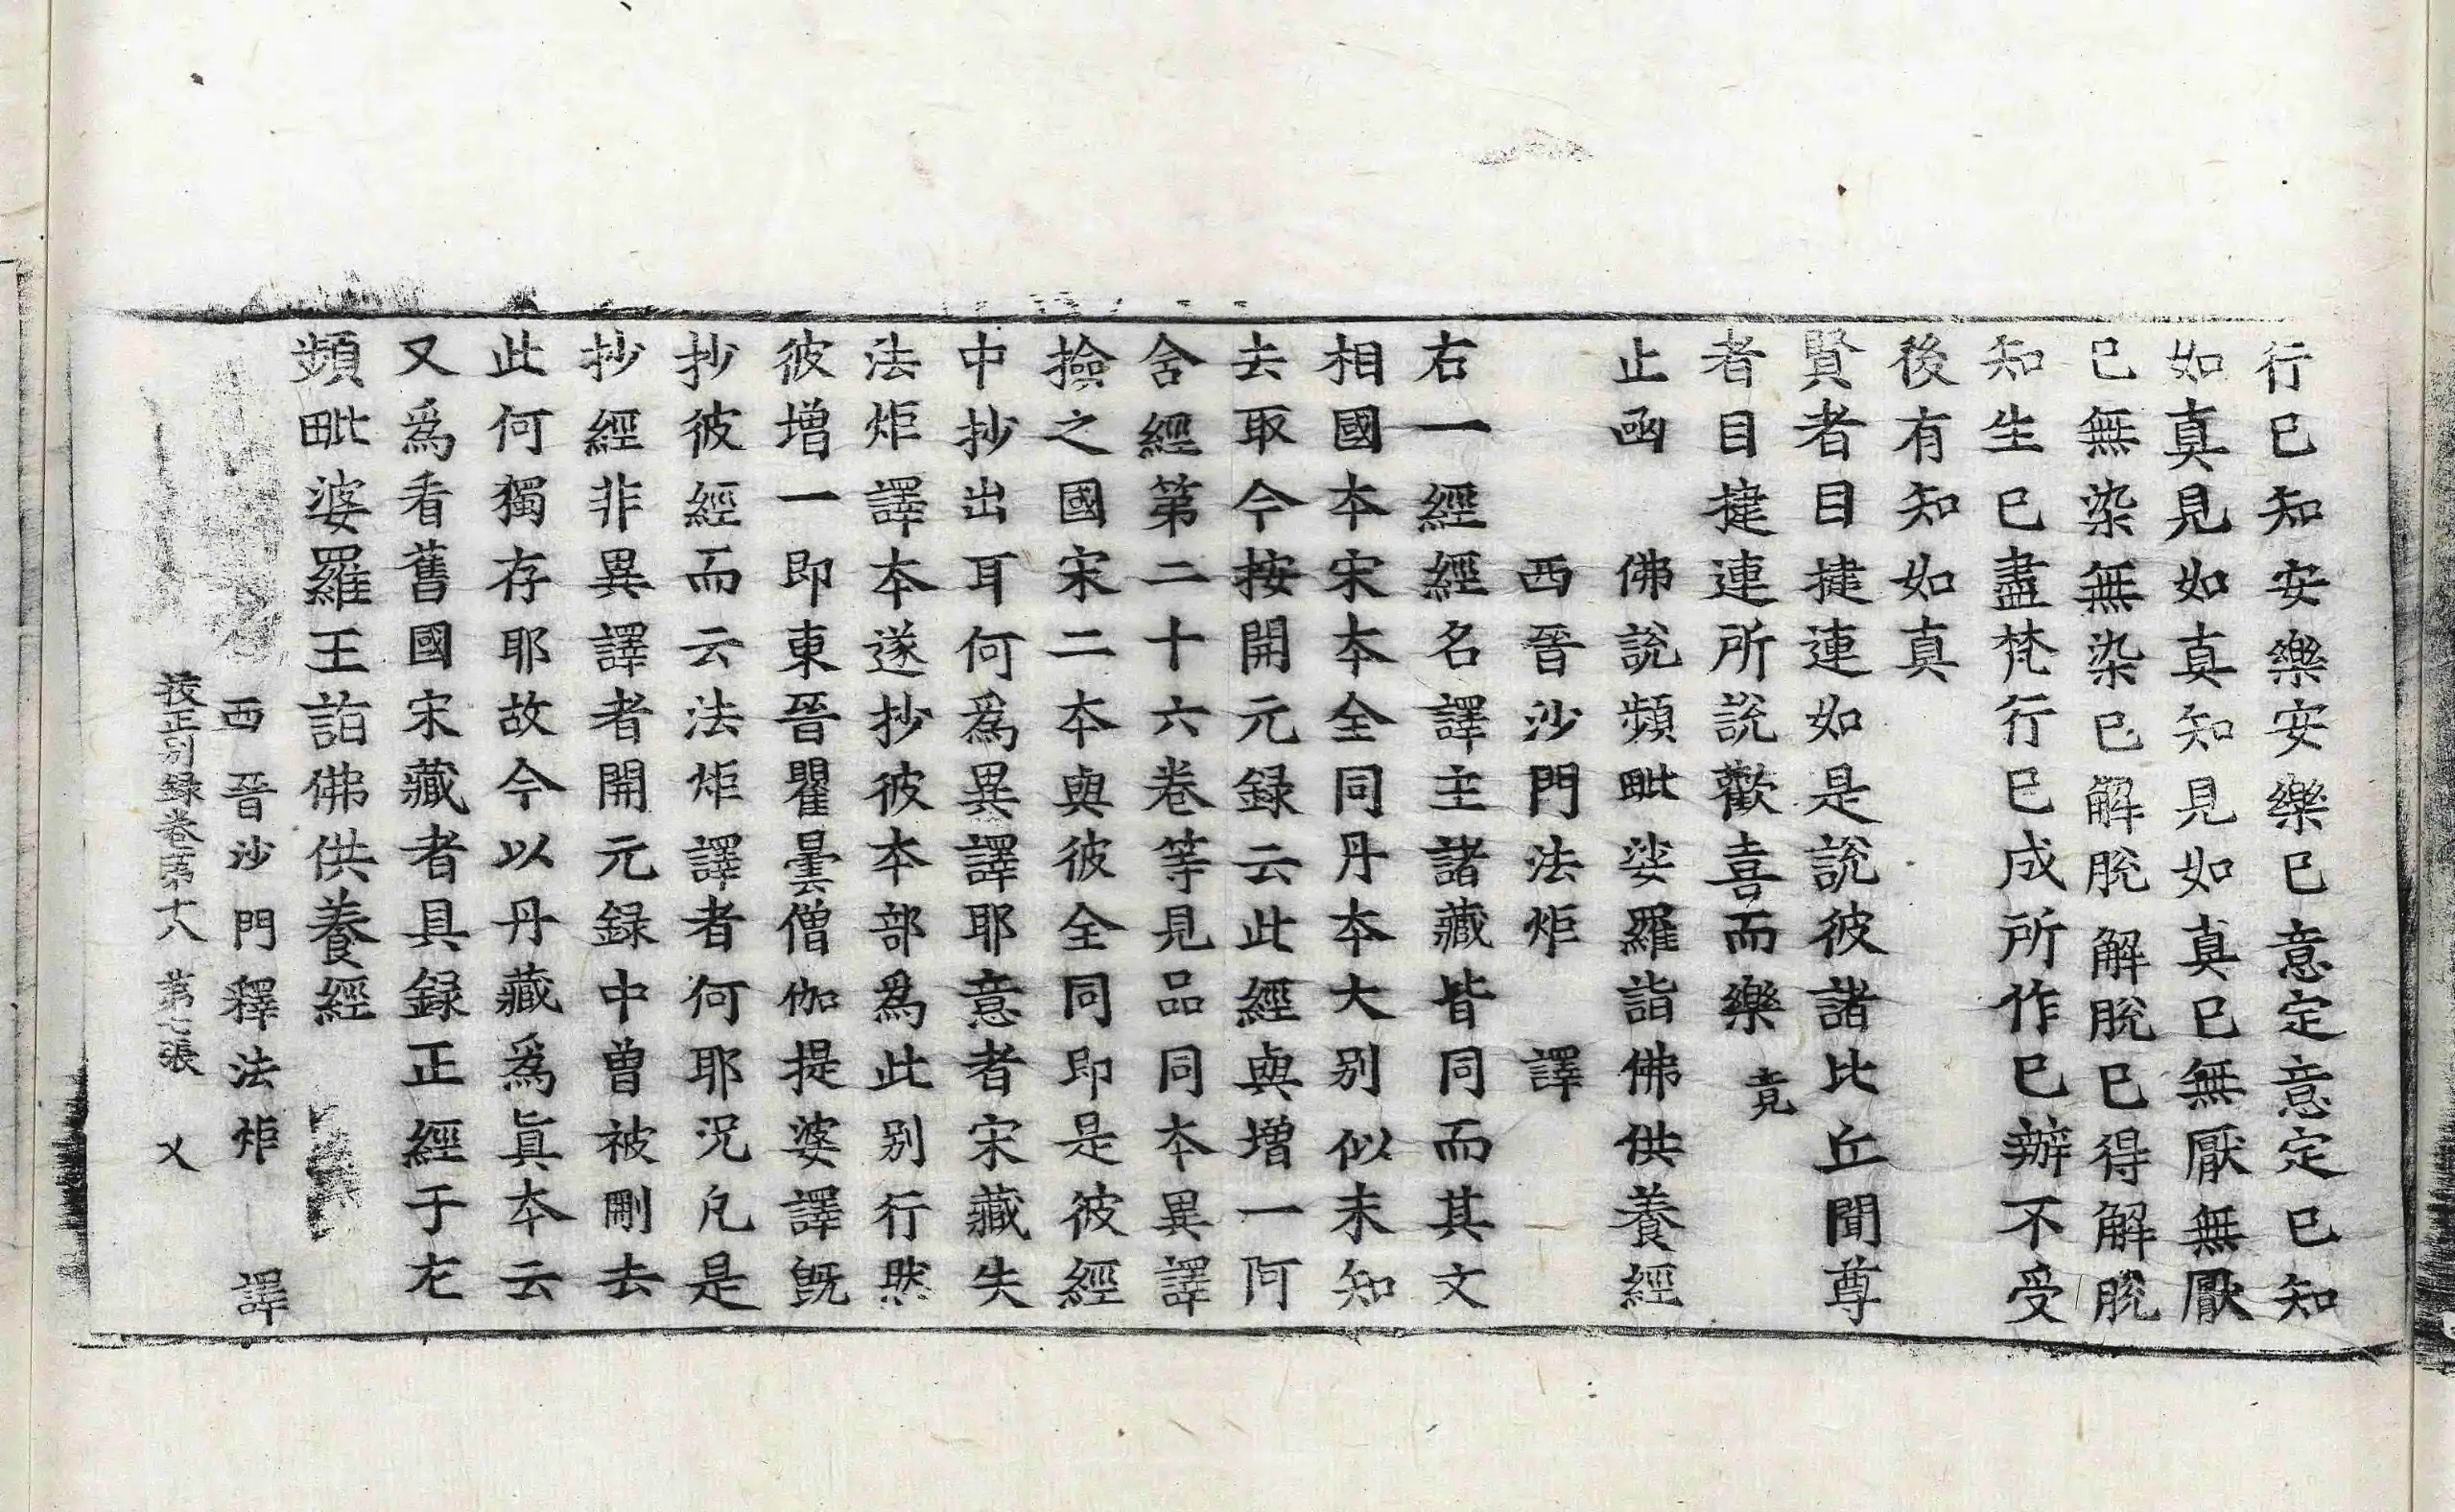 行已知安樂安樂已意定意定已知
如真見如真知見如真已無厭無厭
已無染無染已解脫解脫已得解脫
知生已盡梵行已成所作已辦不受
後有知如真
賢者目揵連如是說彼諸比丘聞尊
者目揵連所說歡喜而樂 竟
止函 佛說頻毗娑羅詣佛供養經
西晉沙門法炬 譯
右一經經名譯主諸藏皆同而其文
相國本宋本全同丹本大别似未知
去取今按開元録云此經與增一阿
含經第二十六卷等見品同本異譯
撿之國宋二本與彼全同即是彼經
中抄出耳何爲異譯耶意者宋藏失
法炬譯本遂抄彼本部爲此别行然
彼增一即東晉瞿曇僧伽提婆譯旣
抄彼經而云法炬譯者何耶況凡是
抄經非異譯者開元録中曾被刪去
此何獨存耶故今以丹藏爲眞本云
又爲看舊國宋藏者具録正經于左
頻毗婆羅王詣佛供養經
西晉沙門釋法炬 譯
校正别録卷第十八 第七張 乂